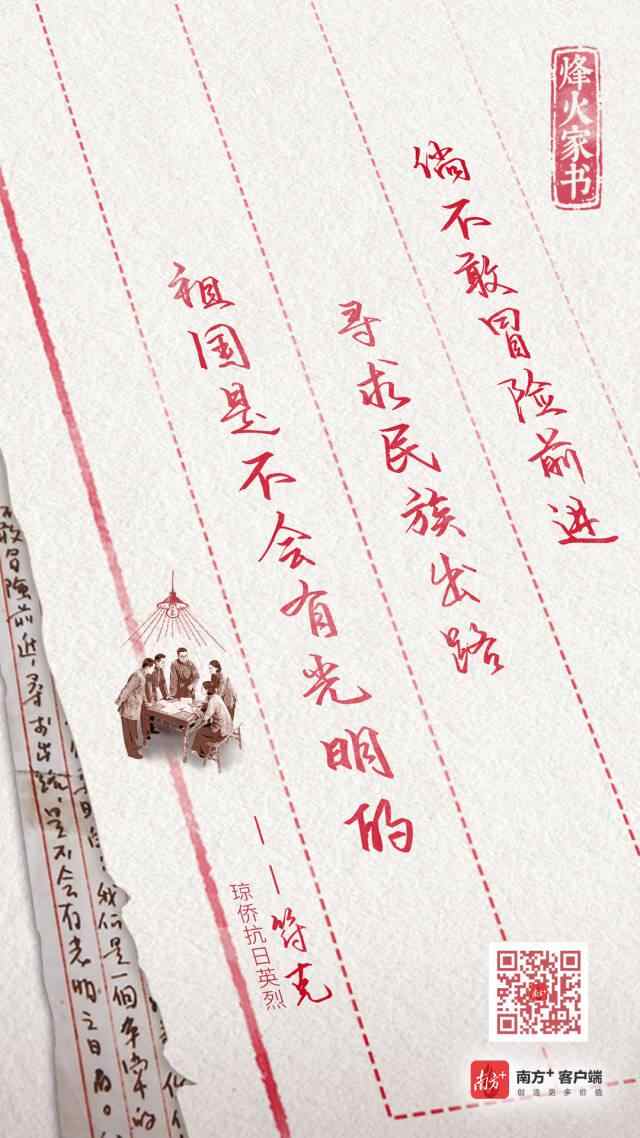 烽火家书
倘不敢冒险前进
寻求民族出路
祖国是不会有光明的
——符克
琼侨抗日英烈
不敢冒險前进,寻求出路,是不会有光明之日的。
我们是一個平常的
南方+
南方+ 客户端
创造更多价值